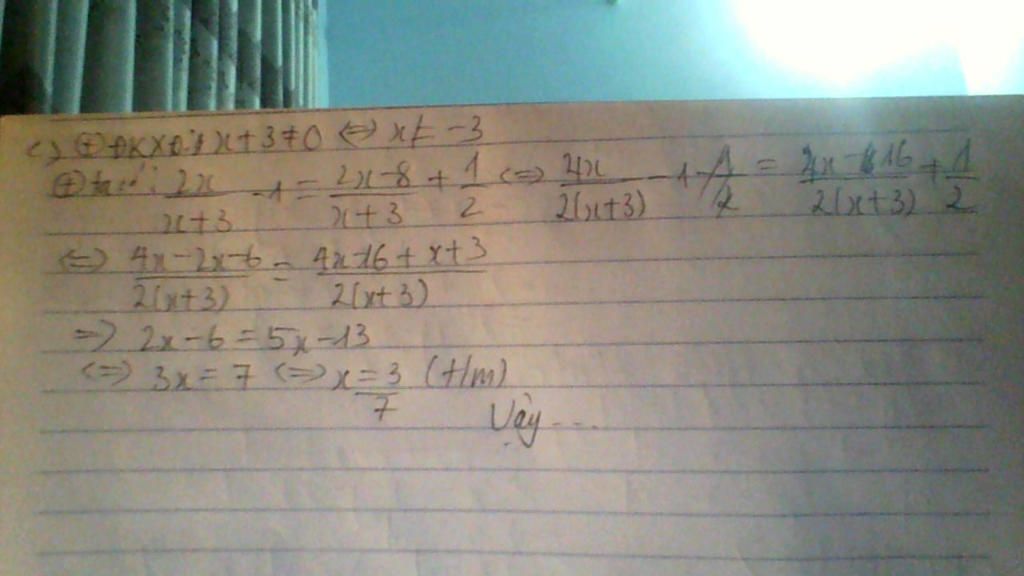 c) ⊕ đkxđ: x+3≠0 ⇔ x≠ -3
⊕ ta có: 2x/(x+3) - 1 = (2x-8)/(x+3) + 1/2 ⇔ 4x/(2(x+3)) - 1 = (4x-16)/(2(x+3)) + 1/2
⇔ (4x-2x-6)/(2(x+3)) = (4x-16+x+3)/(2(x+3))
⇒ 2x-6=5x-13
⇔ 3x=7 ⇔ x=3/7 (t/m)
Vậy ...